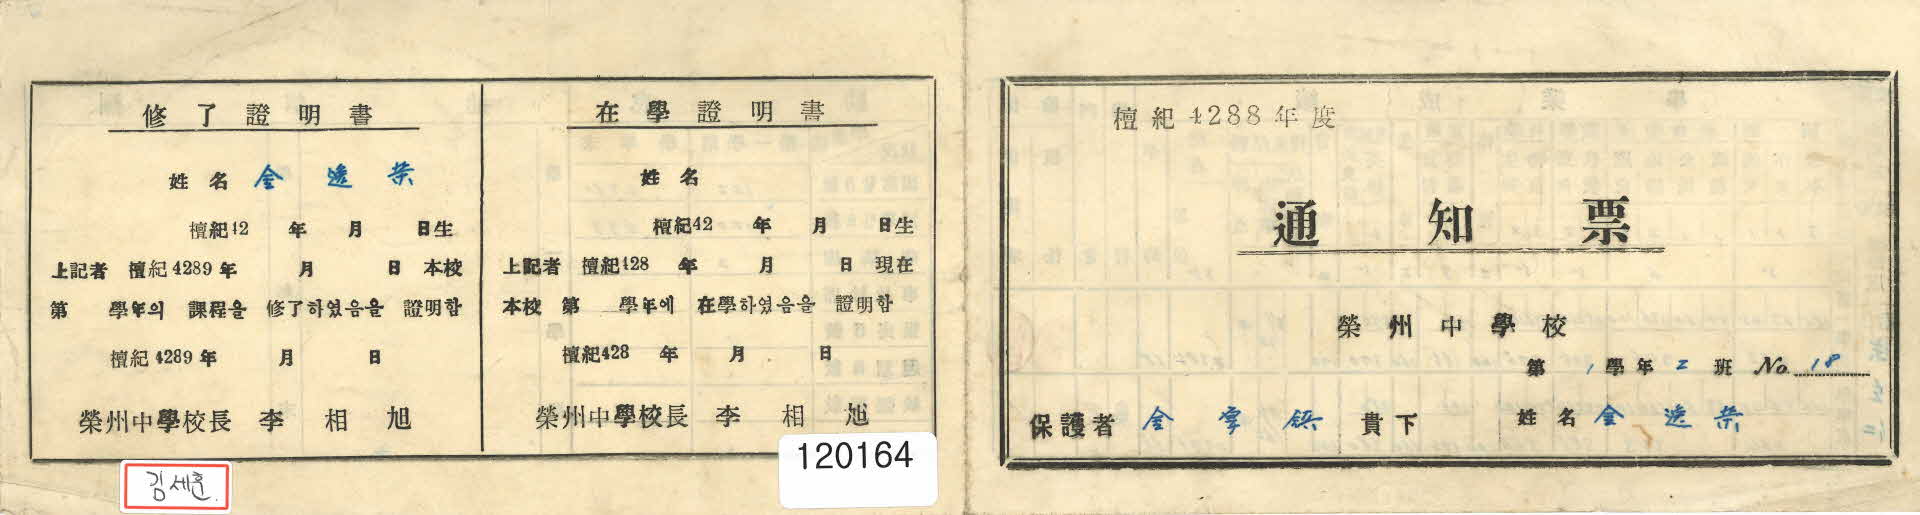 修了證明書
姓名 金逸榮
檀紀42 年 月 日生
上記者 檀紀4289年 月 日 本校
第 學年의 課程을 修了하였음을 證明함
檀紀4289年 月 日
榮州中學校長 李相旭
김세훈
在學證明書
姓名
檀紀42 年 月 日生
上記者 檀紀428 年 月 日 現在
本校 第 學年에 在學하였음을 證明함
檀紀428 年 月 日
榮州中學校長 李相旭
120164
檀紀4288年度
通知票
榮州中學校
第1學年2班 No.18
保護者 金寧鎮 貴下 姓名 金逸榮